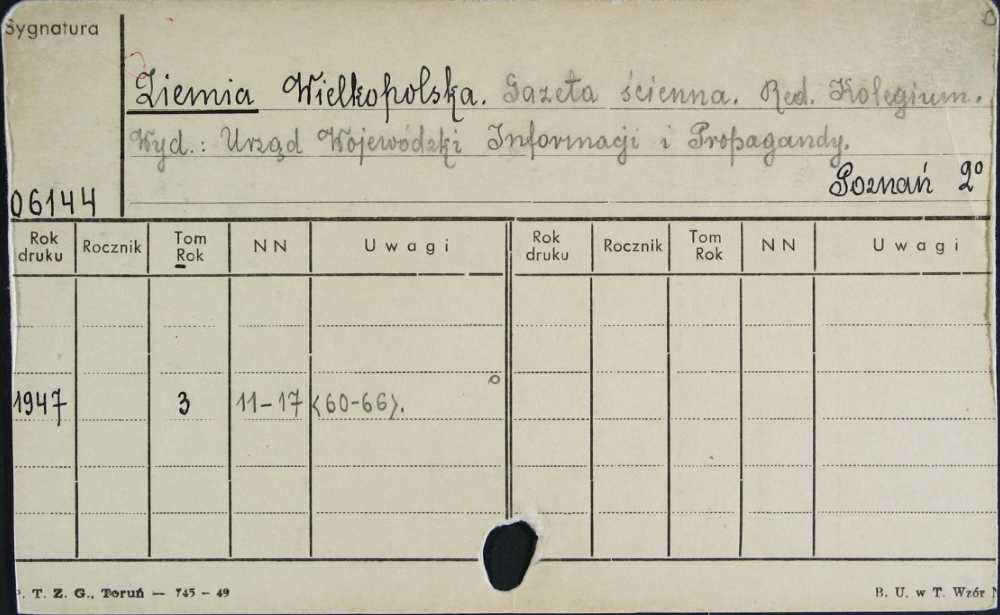 Sygnatura
Ziemia Wielkopolska. Gazeta ścienna. Red. Kolegium.
Wyd.: Urząd Wojewódzki Informacji i Propagandy.
Poznań 2º
06144
Rok druku Rocznik Tom Rok N N Uwagi Rok druku Rocznik Tom Rok N N Uwagi
1947 3 11-17 <60-66>.
P. T. Z. G., Toruń — 745 - 49
B. U. w T. Wzór